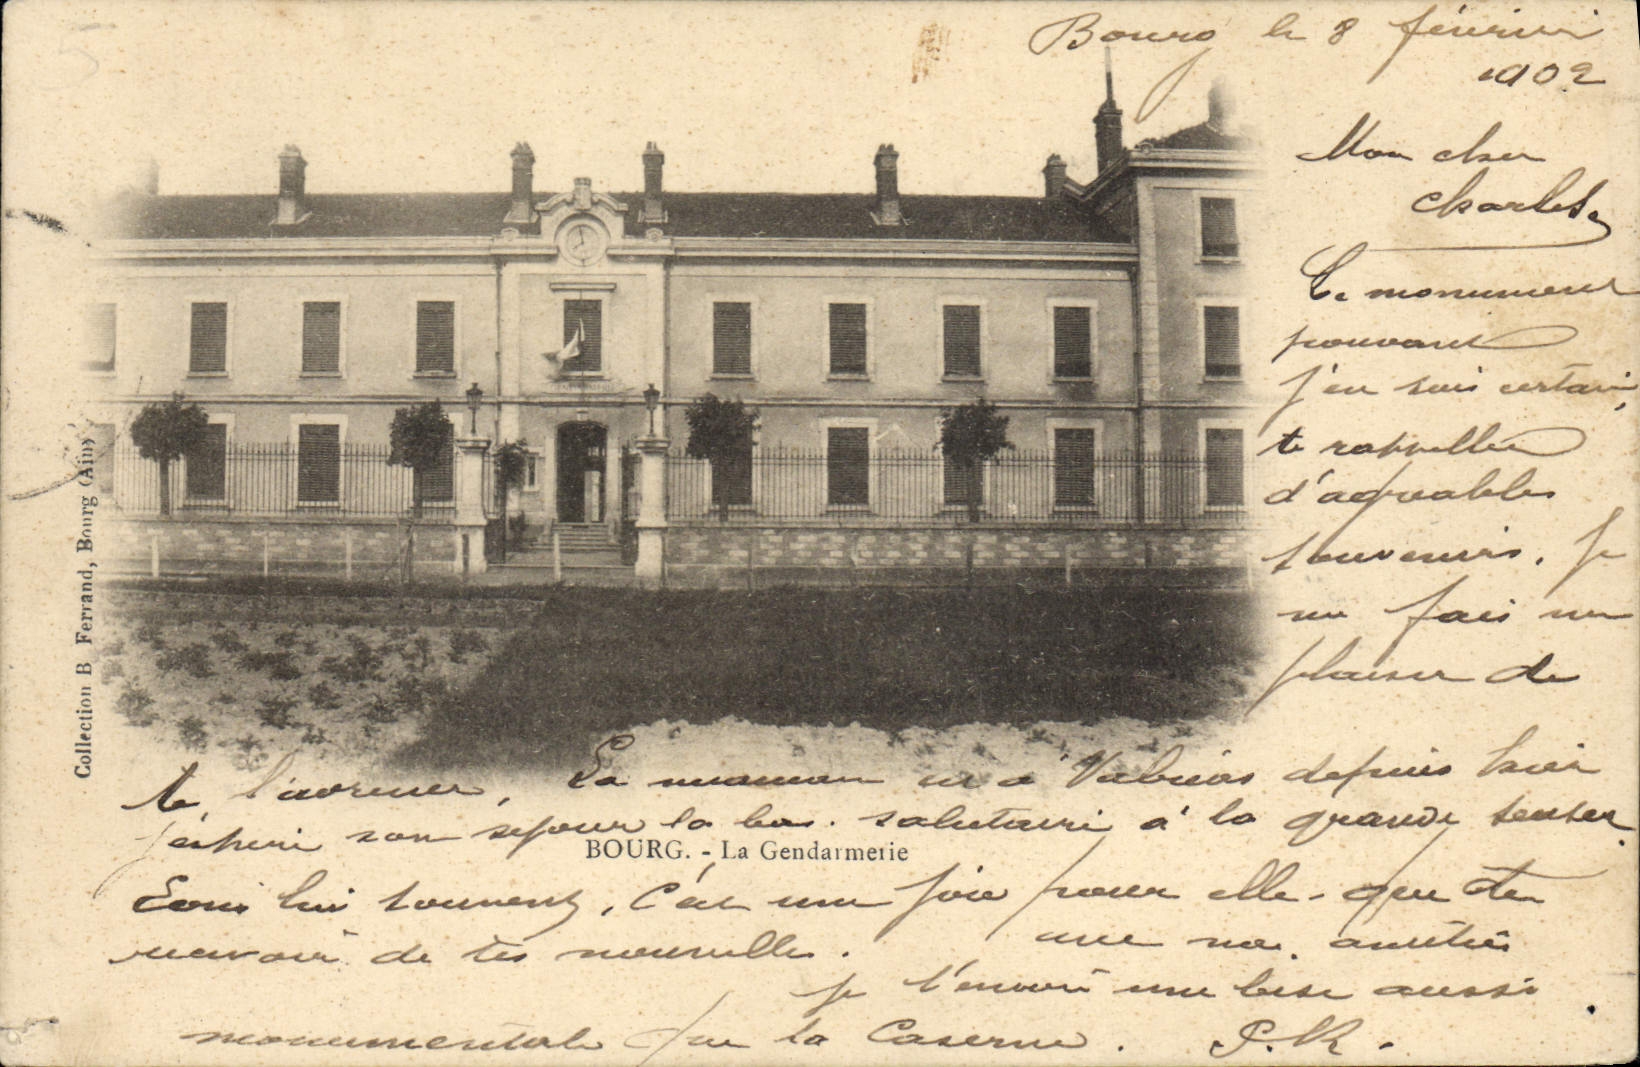 5
Bourg le 8 février
1902
Mon cher
Charles,
Ce monument
pouvant
j'en suis certain,
te rappeller
d'agréables
souvenirs, je
me fais un
plaisir de
te l'envoyer, Ta maman est à depuis hier
j'espère son séjour la bas. salutaire à la grande
BOURG. - La Gendarmerie
Ecris lui souvent, C'est une joie pour elle que de
recevoir de tes nouvelles.
avec mes amitiés
je t'envoie une bise aussi
monumentale que la Caserne. P. R.
Collection B Ferrand, Bourg (Ain)